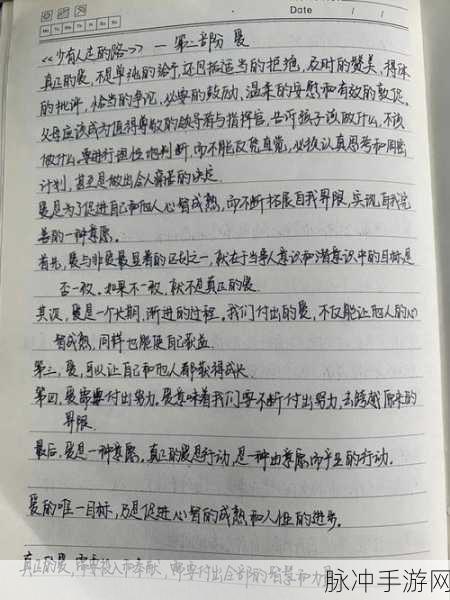 Date
Mo Tu We Th Fr Sa Su
<<少有人走的路>> — 第二部分 爱
真正的爱,不是单纯的给予,还包括适当的拒绝,及时的赞美,得体
的批评,恰当的争论,必要的鼓励,温柔的安慰和有效的敦促。
父母应该成为值得尊敬的领导者与指挥官,告诉孩子该做什么,不该
做什么,要进行理性地判断,而不能仅凭直觉,必须认真思考和周密
计划,甚至是做出令人痛苦的决定
爱是为了促进自己和他人心智成熟,而不断拓展自我界限,实现自我完
善的一种意愿。
首先,爱与非爱最显著的区别之一,就在于当事人意识和潜意识中的目标是
否一致。如果不一致,就不是真正的爱
其次,爱是一个长期,渐进的过程。我们付出的爱,不仅能让他人的心
智成熟,同样也能使自己获益
第三,爱,可以让自己和他人都获得成长
第四,爱需要付出努力。爱意味着我们要不断付出努力,去跨越原来的
界限
最后,爱是一种意愿,真正的爱是行动,是一种由意愿而产生的行动.
爱的唯一目标,乃是促进心智的成熟和人性的进步。
真正的爱,需要投入和奉献,需要付出全部的智慧和力
脉冲手游网